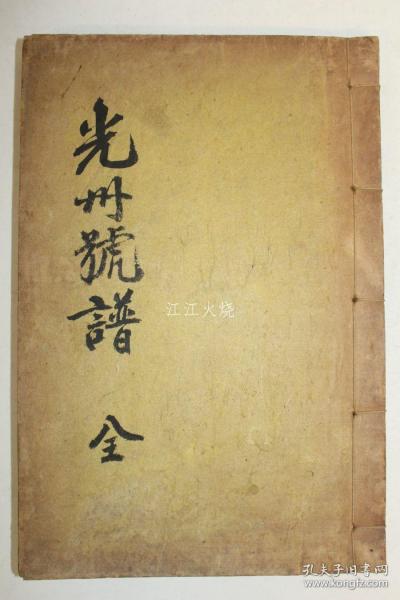 光州號譜 全
江江火烧
孔夫子旧书网
www.kongfz.com